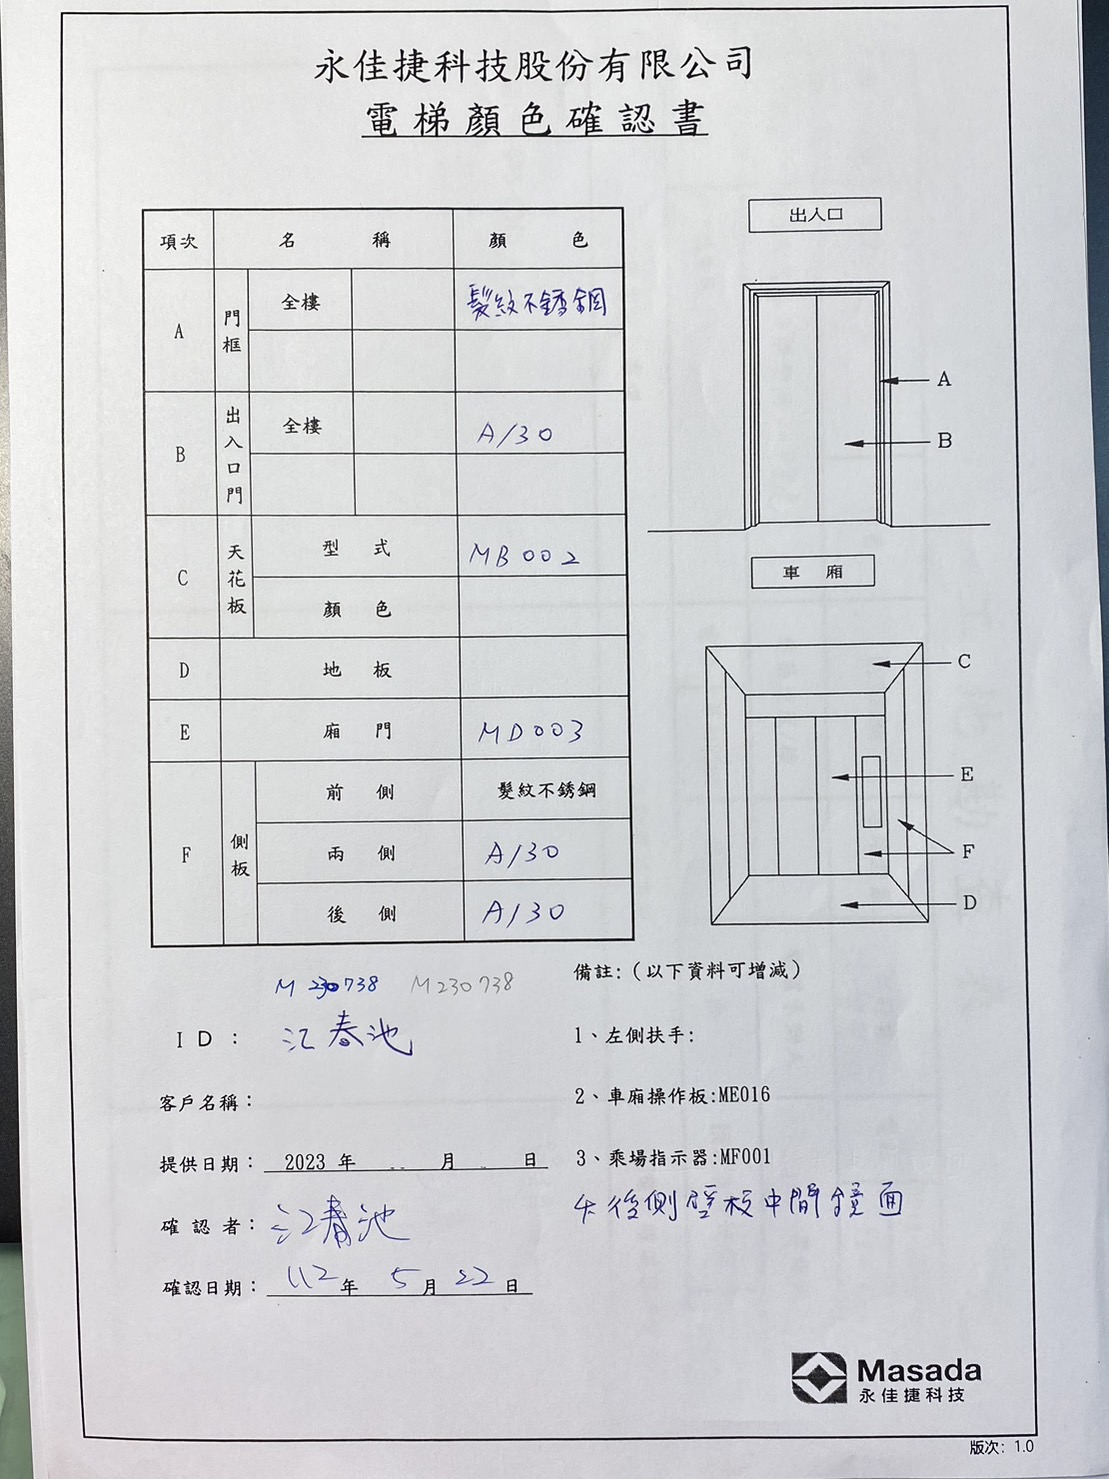 永佳捷科技股份有限公司
電梯顏色確認書
項次 名稱 顏色
A 門框 全樓 髮紋不銹鋼
B 出入口門 全樓 A130
C 天花板 型式 MB002
顏色
D 地板
E 廂門 MD003
F 側板 前側 髮紋不銹鋼
兩側 A130
後側 A130
出入口
A
B
車廂
C
E
F
D
M230738 M230738
ID: 江春池
客戶名稱:
提供日期: 2023 年 月 日
確認者: 江春池
確認日期: 112年 5月22日
備註:(以下資料可增減)
1、左側扶手:
2、車廂操作板:ME016
3、乘場指示器:MF001
4、後側壁板中間鏡面
Masada
永佳捷科技
版次: 1.0